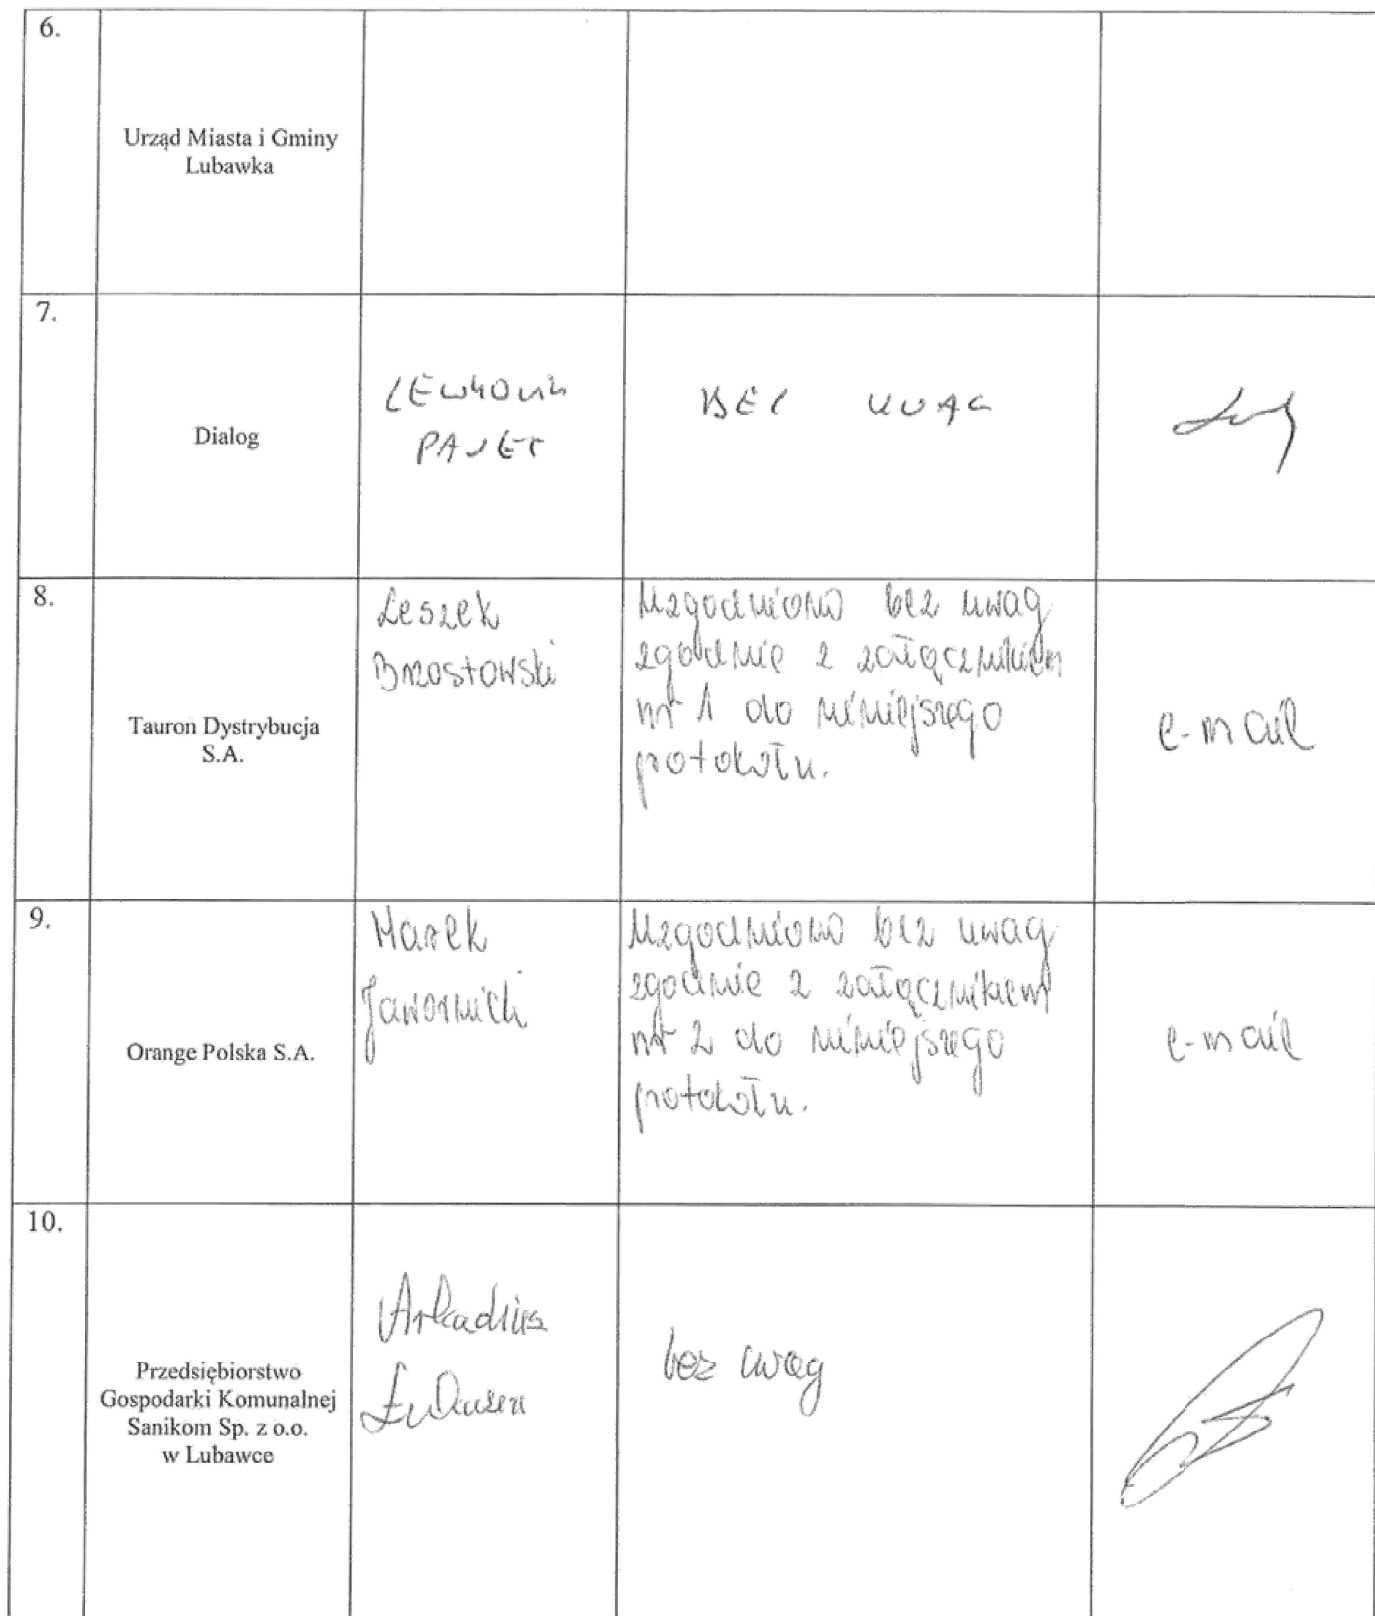 6.
Urząd Miasta i Gminy
Lubawka
7.
Dialog
PAWEŁ
BEZ UWAG
8.
Tauron Dystrybucja
S.A.
Leszek
Brzostowski
Uzgodniono bez uwag
zgodnie z załącznikiem
nr 1 do niniejszego
protokołu.
e-mail
9.
Orange Polska S.A.
Marek
Jawornicki
Uzgodniono bez uwag
zgodnie z załącznikiem
nr 2 do niniejszego
protokołu.
e-mail
10.
Przedsiębiorstwo
Gospodarki Komunalnej
Sanikom Sp. z o.o.
w Lubawce
Arkadiusz
bez uwag